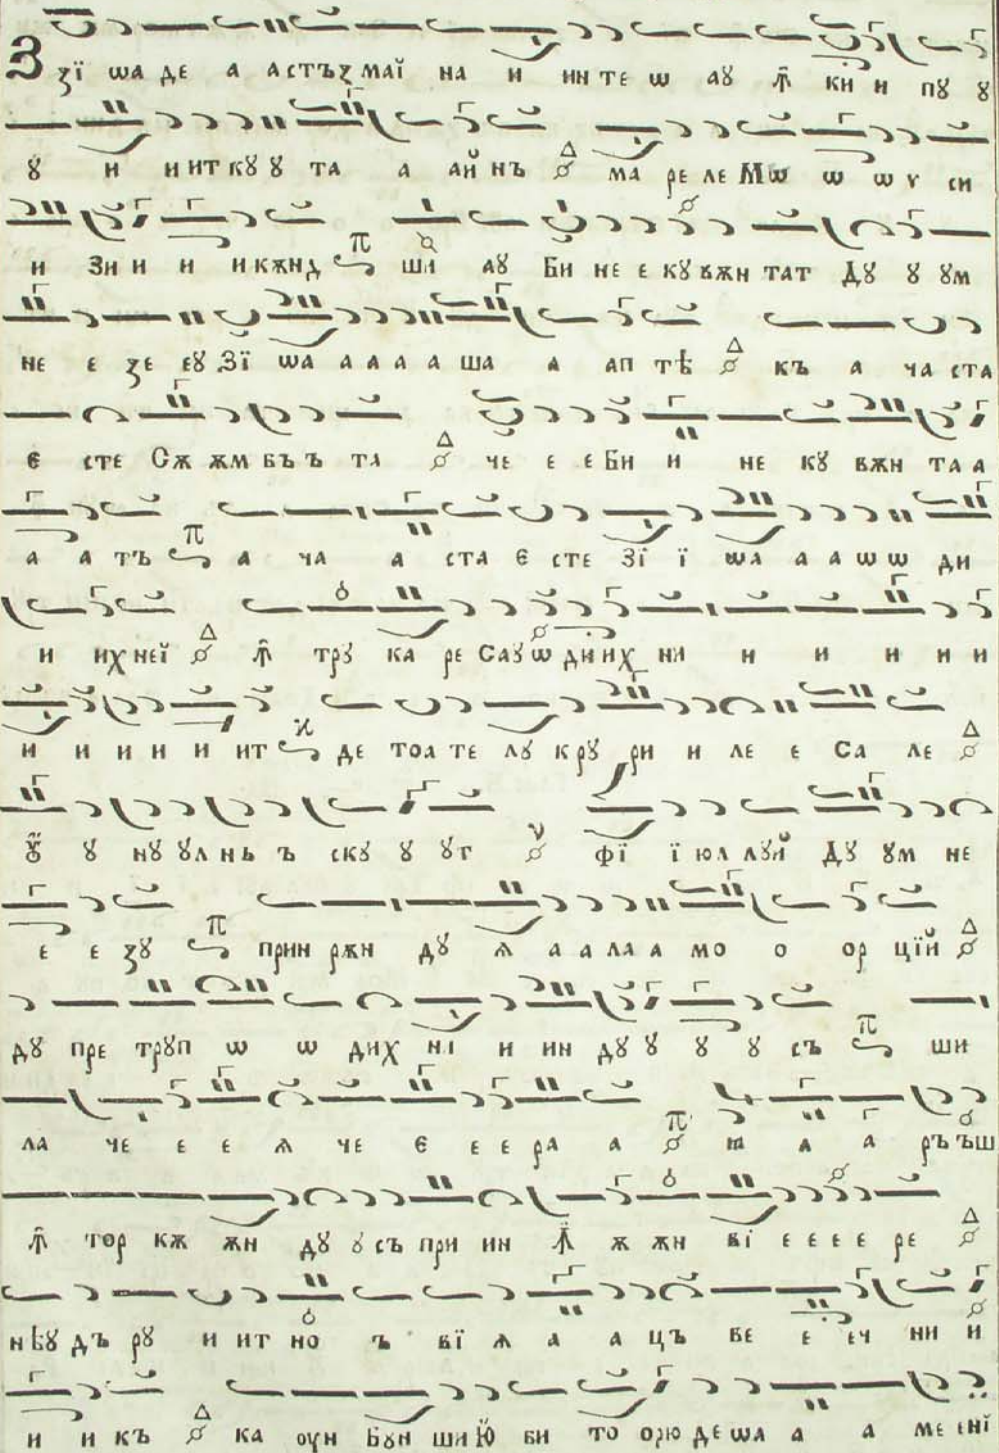 Ззї ѡа де а а стъꙁ маї на и ин те ѡ ау ꙟ ки и пꙋ ꙋ
ꙋ и и ит кꙋ ꙋ та а ай нъ ма ре ле Мѡ ѡ ѡ ѵ си
и Зи и и и кѫнд ши ау Би не е кꙋ вѫн тат Дꙋ ꙋ ꙋм
не е ꙁе еꙋ Зї ѡа а а а а ша а ап тѣ къ а ча ста
є сте Сѫ ѫм бъ ъ та че е е Би и не кꙋ вѫн та а
а а тъ а ча а ста Є сте Зї ї ѡа а а ѡ ѡ ди
и их неї ꙟ трꙋ ка ре Сау ѡ ди их ни и и и и и
и и и и и ит де тоа те лꙋ крꙋ ри и ле е са ле
ꙋ ꙋ нꙋ ꙋл нь ъ скꙋ ꙋ ꙋт фї ї юл лꙋй Дꙋ ꙋм не
е е ꙁꙋ прин рѫн дꙋ ѧ а а ла а мо о ор цїй
дꙋ пре трꙋп ѡ ѡ дих ни и ин дꙋ ꙋ ꙋ ꙋ съ ши
ла че е е ѧ че Є е е ра а ꙗ а а ръ ъш
ꙟ тор кѫ ѫн дꙋ ꙋ съ при ин ꙟ ѫ ѫн вї е е е е ре
нѣꙋ дъ рꙋ и ит но ъ вї ѧ а а цъ ве е еч ни и
и и къ ка оун Бꙋн ши Ю би то орю де ѡа а а ме енї